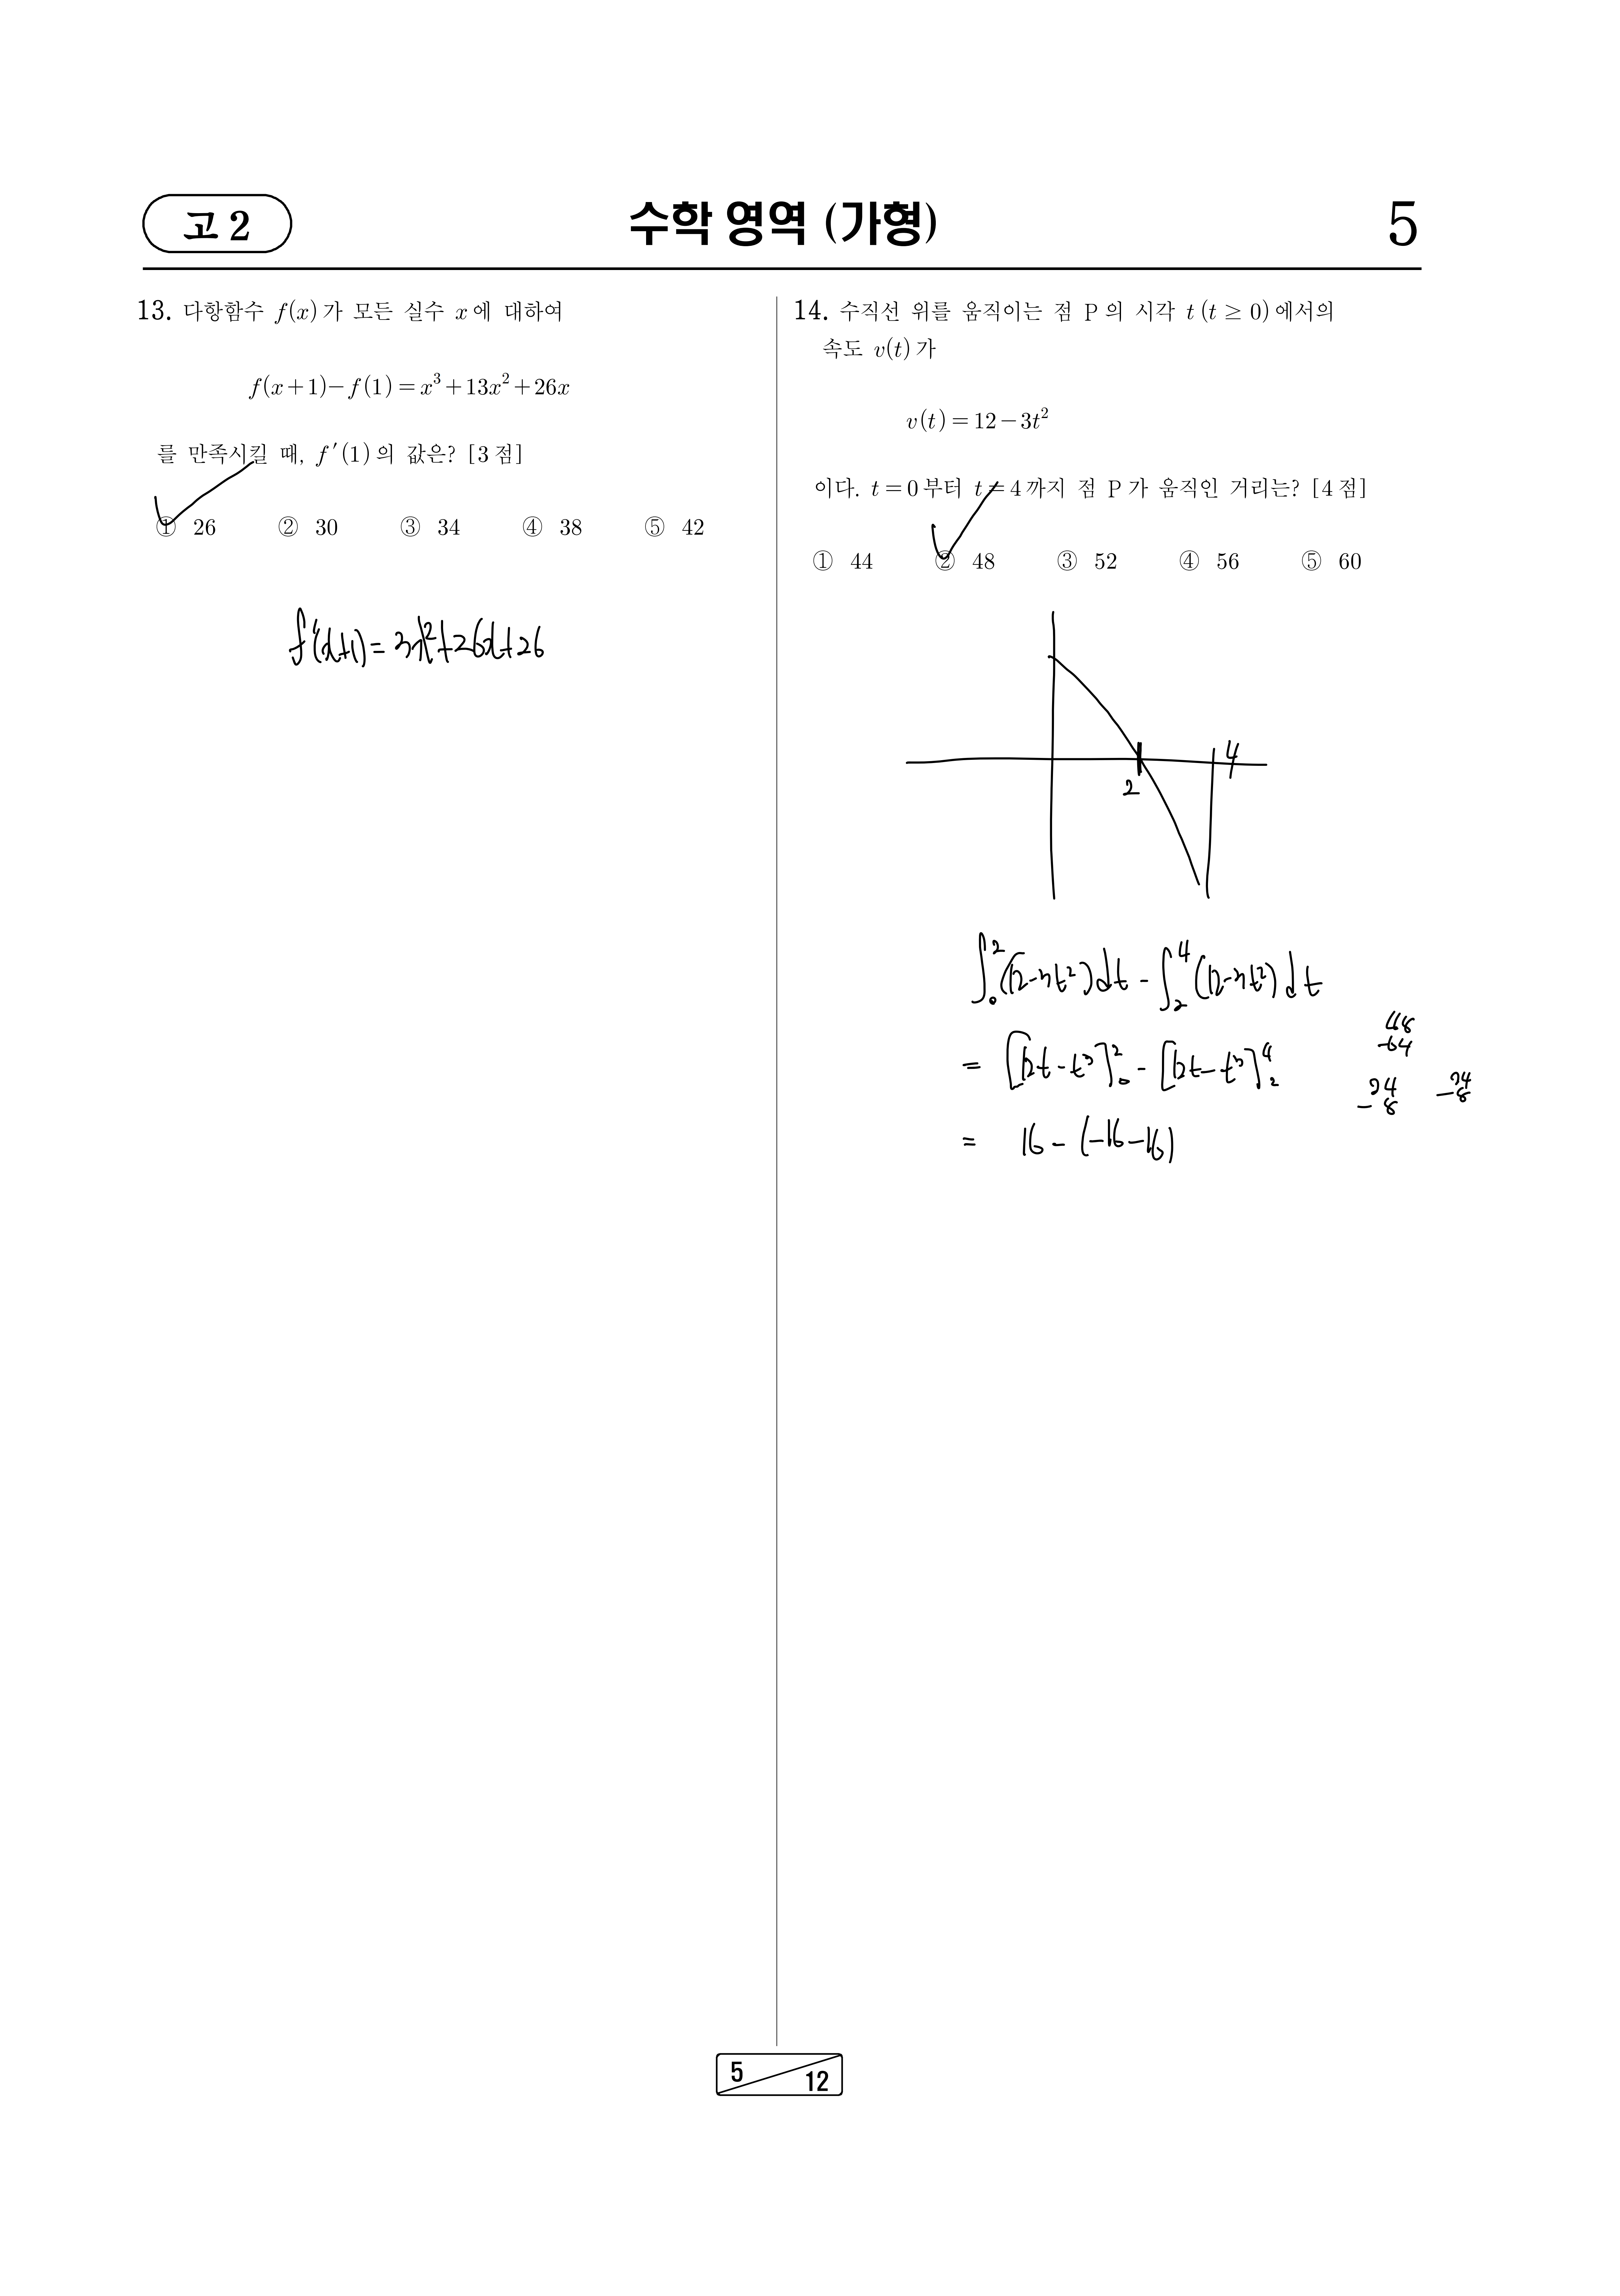 고 2
수학 영역 (가형)
5
13. 다항함수 f(x)가 모든 실수 x에 대하여
f(x+1)−f(1)=x³+13x²+26x
를 만족시킬 때, f′(1)의 값은? [3점]
① 26 ② 30 ③ 34 ④ 38 ⑤ 42
f'(x+1)=3x²+26x+26
14. 수직선 위를 움직이는 점 P의 시각 t(t ≥ 0)에서의
속도 v(t)가
v(t)=12−3t²
이다. t=0부터 t=4까지 점 P가 움직인 거리는? [4점]
① 44 ② 48 ③ 52 ④ 56 ⑤ 60
4
2
∫₀²(12-3t²)dt - ∫₂⁴(12-3t²)dt
= [12t-t³]₀² - [12t-t³]₂⁴
48
-64
24
-8
24
-8
= 16-(-16-16)
5
12